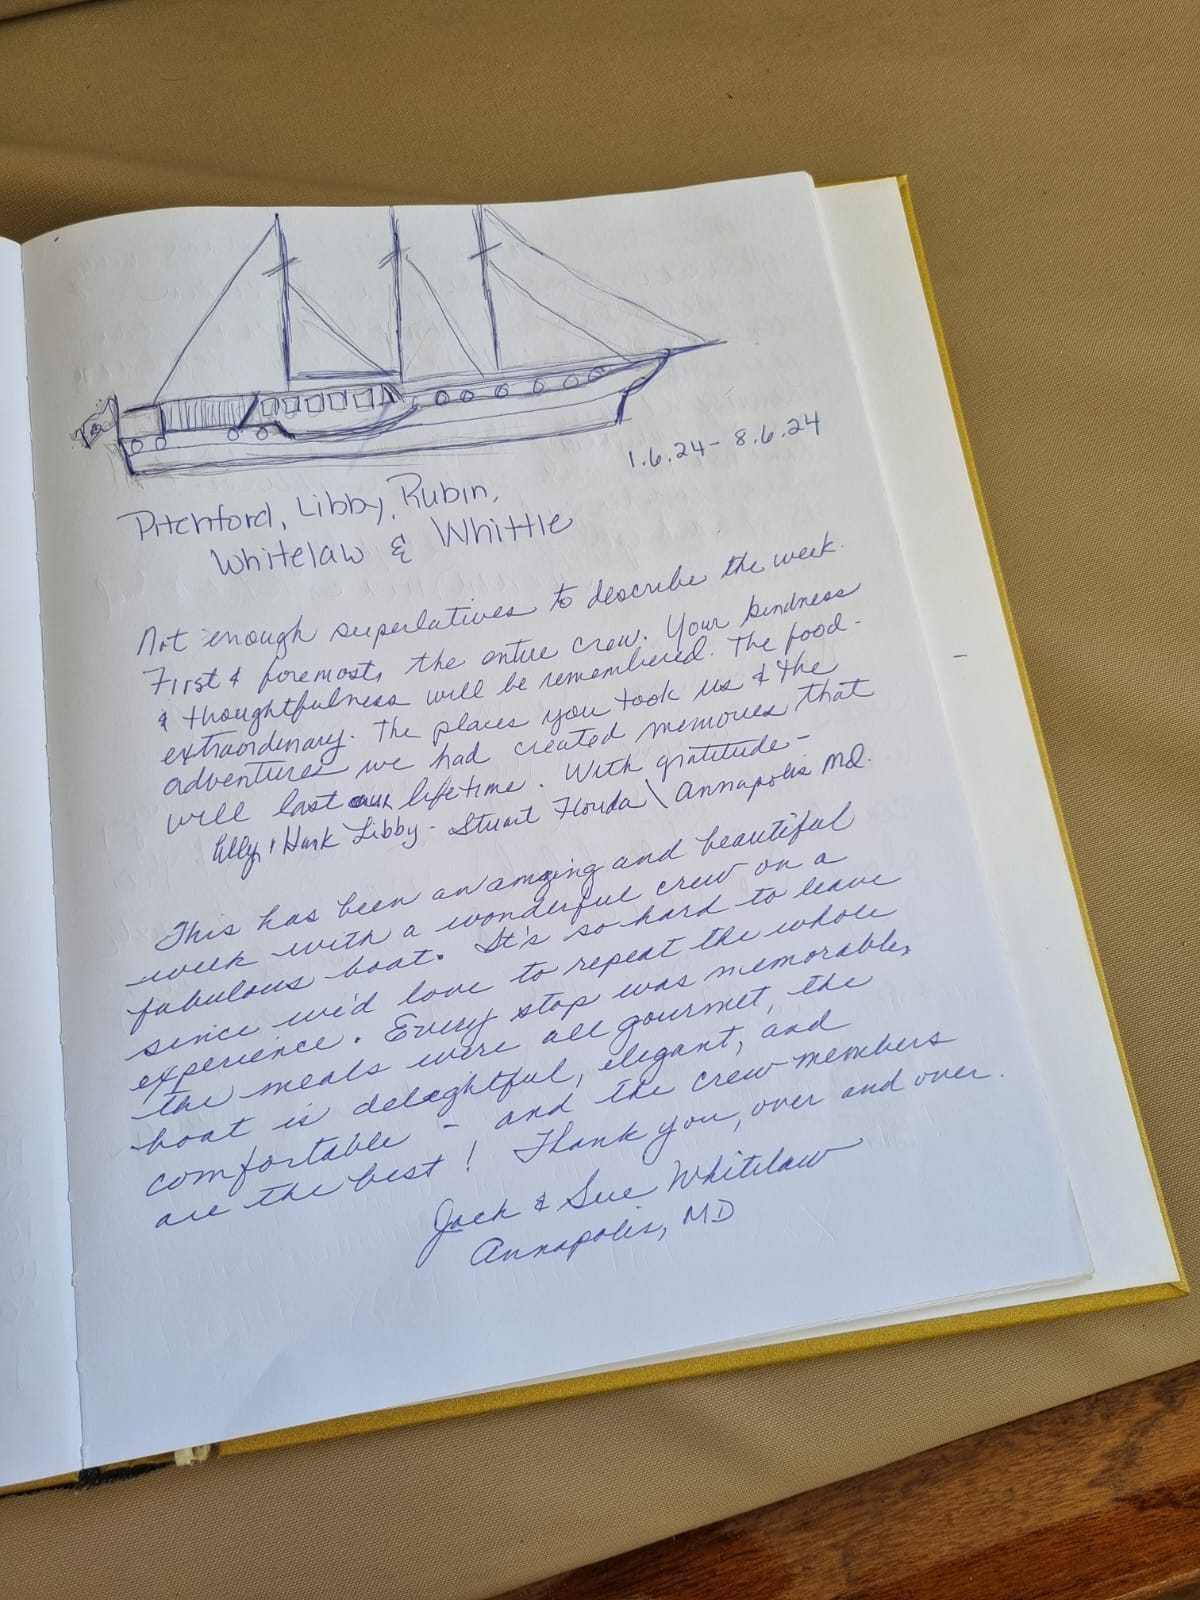 1.6.24 - 8.6.24
Pitchford, Libby, Rubin,
Whitelaw & Whittle
Not enough superlatives to describe the week.
First & foremost, the entire crew. Your kindness
& thoughtfulness will be remembered. The food -
extraordinary. The places you took us & the
adventures we had created memories that
will last our lifetime. With gratitude -
Libby - Stuart Florida \ Annapolis Md.
This has been an amazing and beautiful
week with a wonderful crew on a
fabulous boat. It's so hard to leave
since we'd love to repeat the whole
experience. Every stop was memorable,
the meals were all gourmet, the
boat is delightful, elegant, and
comfortable - and the crew members
are the best! Thank you, over and over.
Jack & Sue Whitelaw
Annapolis, MD